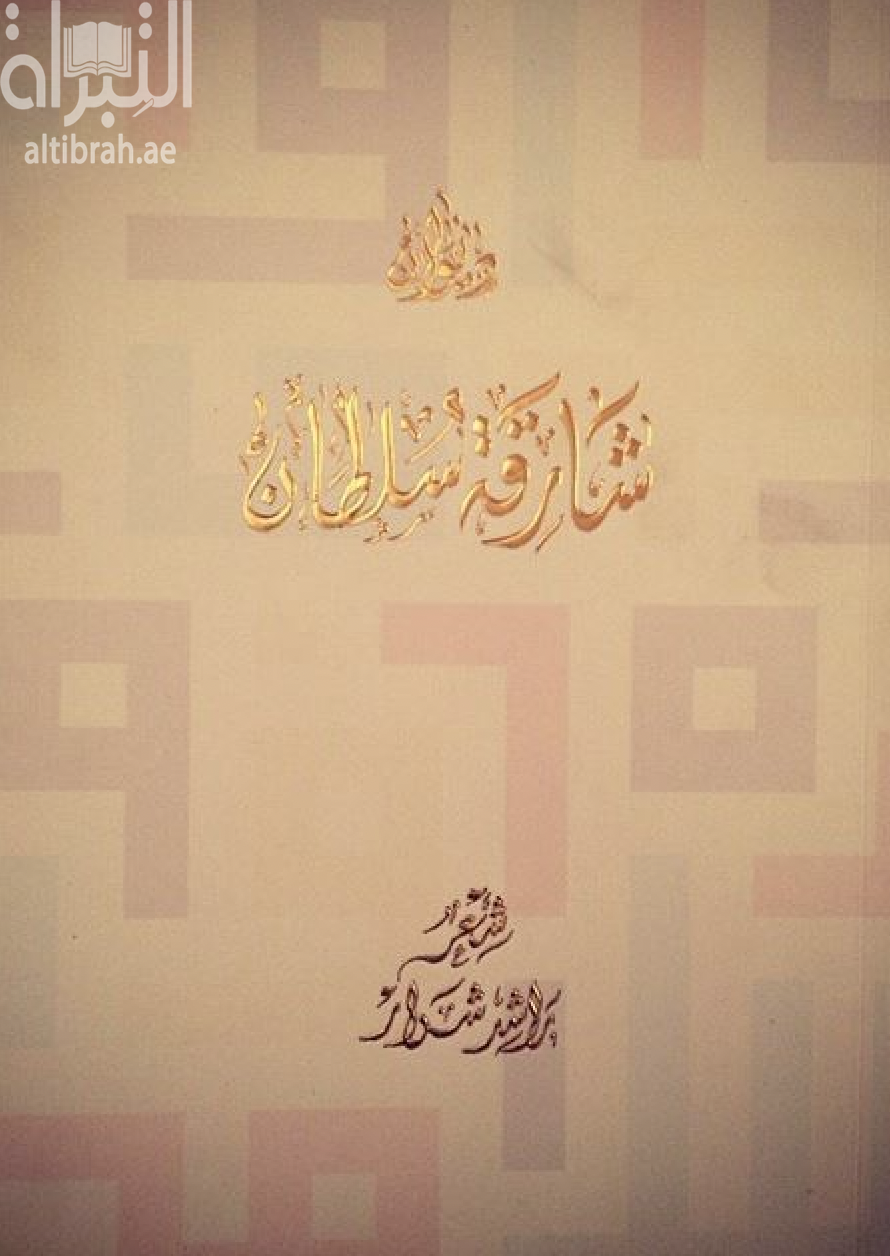 التبراه
altibrah.ae
ديوان
شارقة سلطان
شعر
راشد شرار